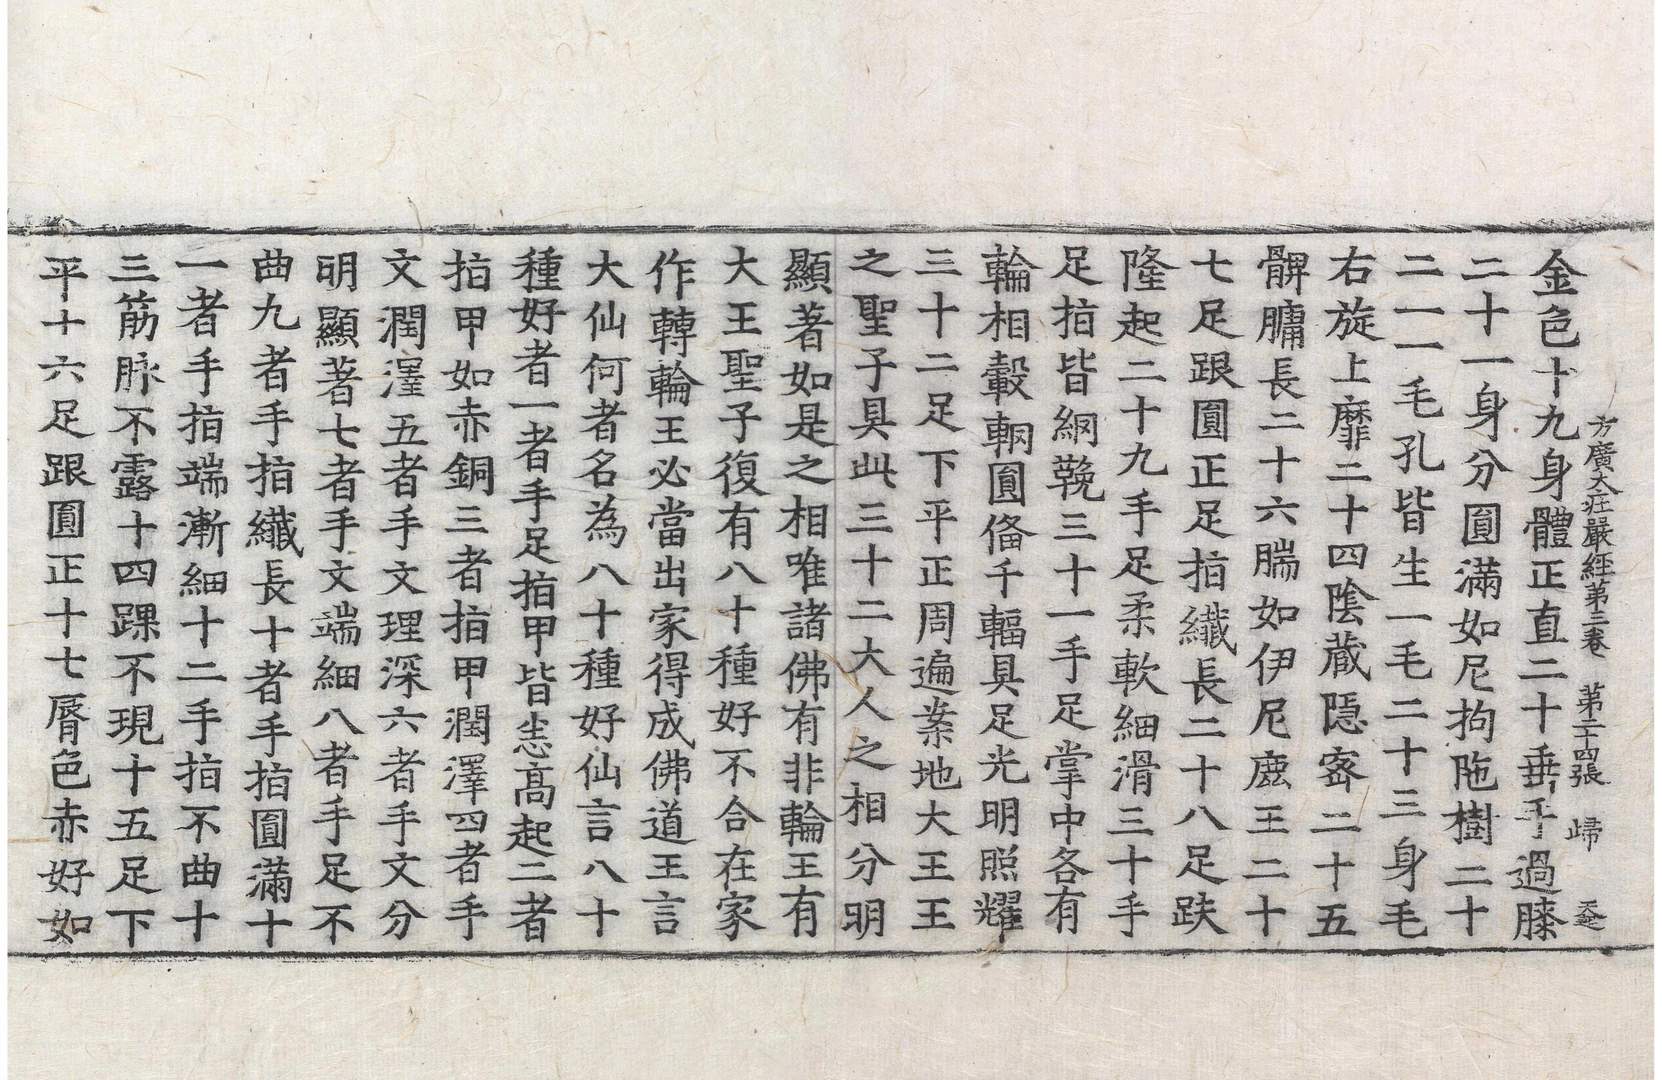 方廣大莊嚴經第三卷 第二十四張 歸
金色十九身體正直二十垂手過膝
二十一身分圓滿如尼拘陁樹二十
二一一毛孔皆生一毛二十三身毛
右旋上靡二十四陰藏隱宻二十五
髀𦟛長二十六腨如伊尼鹿王二十
七足跟圓正足指纖長二十八足趺
隆起二十九手足柔軟細滑三十手
足指皆網鞔三十一手足掌中各有
輪相轂輞圓俻千輻具足光明照耀
三十二足下平正周遍案地大王王
之聖子具此三十二大人之相分明
顯著如是之相唯諸佛有非輪王有
大王聖子復有八十種好不合在家
作轉輪王必當出家得成佛道王言
大仙何者名為八十種好仙言八十
種好者一者手足指甲皆悉高起二者
指甲如赤銅三者指甲潤澤四者手
文潤澤五者手文理深六者手文分
明顯著七者手文端細八者手足不
曲九者手指纖長十者手指圓滿十
一者手指端漸細十二手指不曲十
三筋脉不露十四踝不現十五足下
平十六足跟圓正十七脣色赤好如